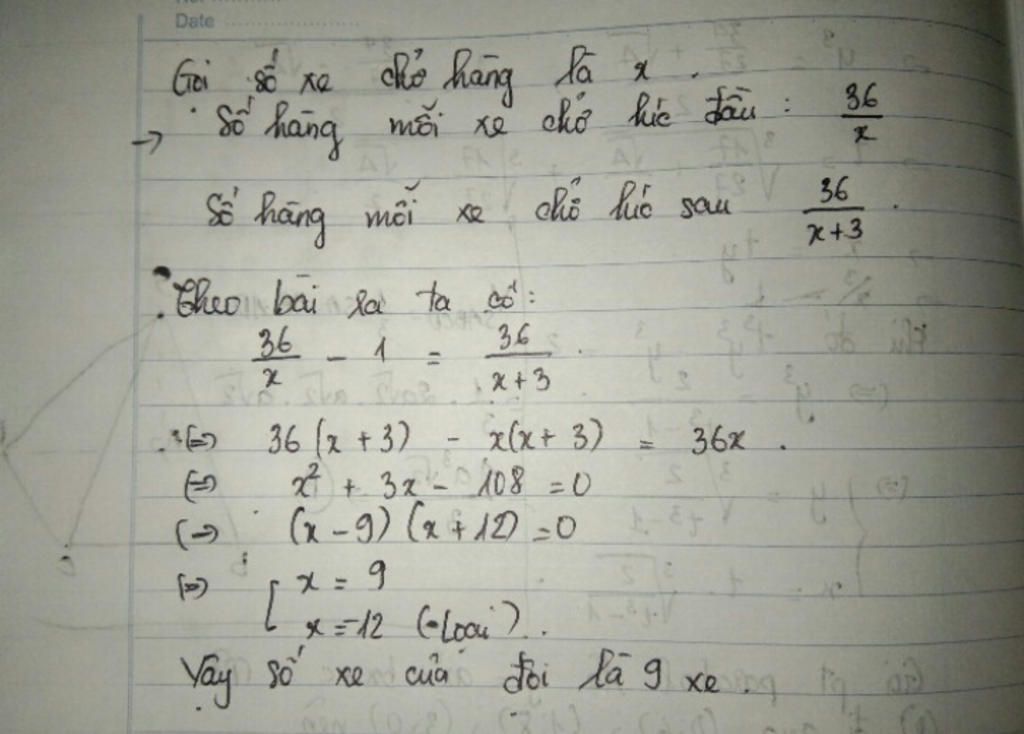 Date
Gọi số xe chở hàng là x.
→ Số hàng mỗi xe chở lúc đầu: 36/x
Số hàng mỗi xe chở lúc sau 36/(x+3).
Theo bài ra ta có:
36/x - 1 = 36/(x+3).
(=) 36(x+3) - x(x+3) = 36x.
(=) x² + 3x - 108 = 0
(=) (x-9)(x+12) = 0
(=) [ x = 9
x = -12 (Loại)..
Vậy số xe của đội là 9 xe.